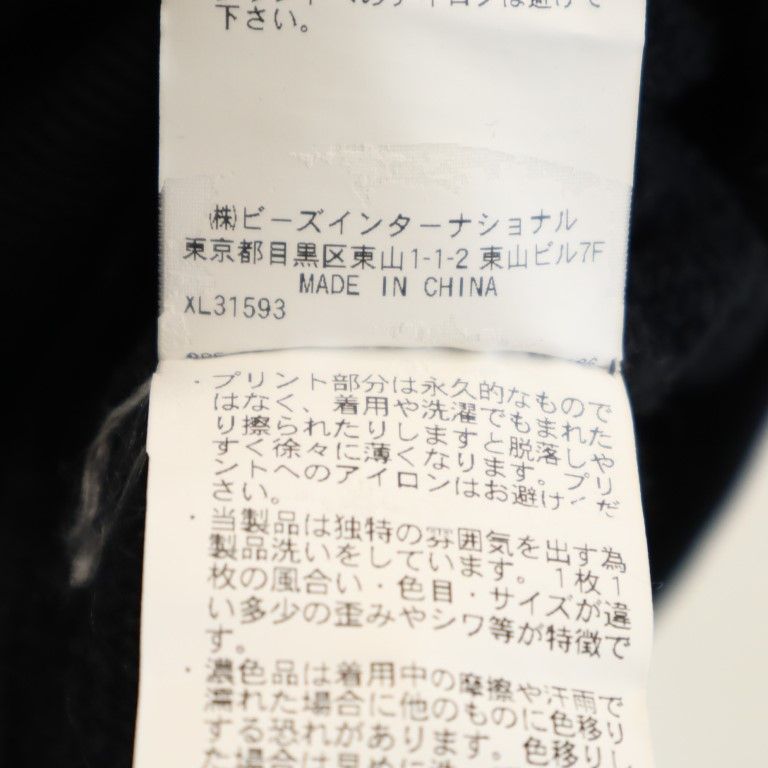 下さい。
㈱ビーズインターナショナル
東京都目黒区東山1-1-2 東山ビル7F
MADE IN CHINA
XL31593
・プリント部分は永久的なもので
はなく、着用や洗濯でもまれた
り擦られたりしますと脱落しや
すく徐々に薄くなります。プリ
ントへのアイロンはお避けくだ
さい。
・当製品は独特の雰囲気を出す為
製品洗いをしています。1枚1
枚の風合い・色目・サイズが違
い多少の歪みやシワ等が特徴で
す。
・濃色品は着用中の摩擦や汗雨で
濡れた場合に他のものに色移り
する恐れがあります。色移りし
た場合は早めに洗